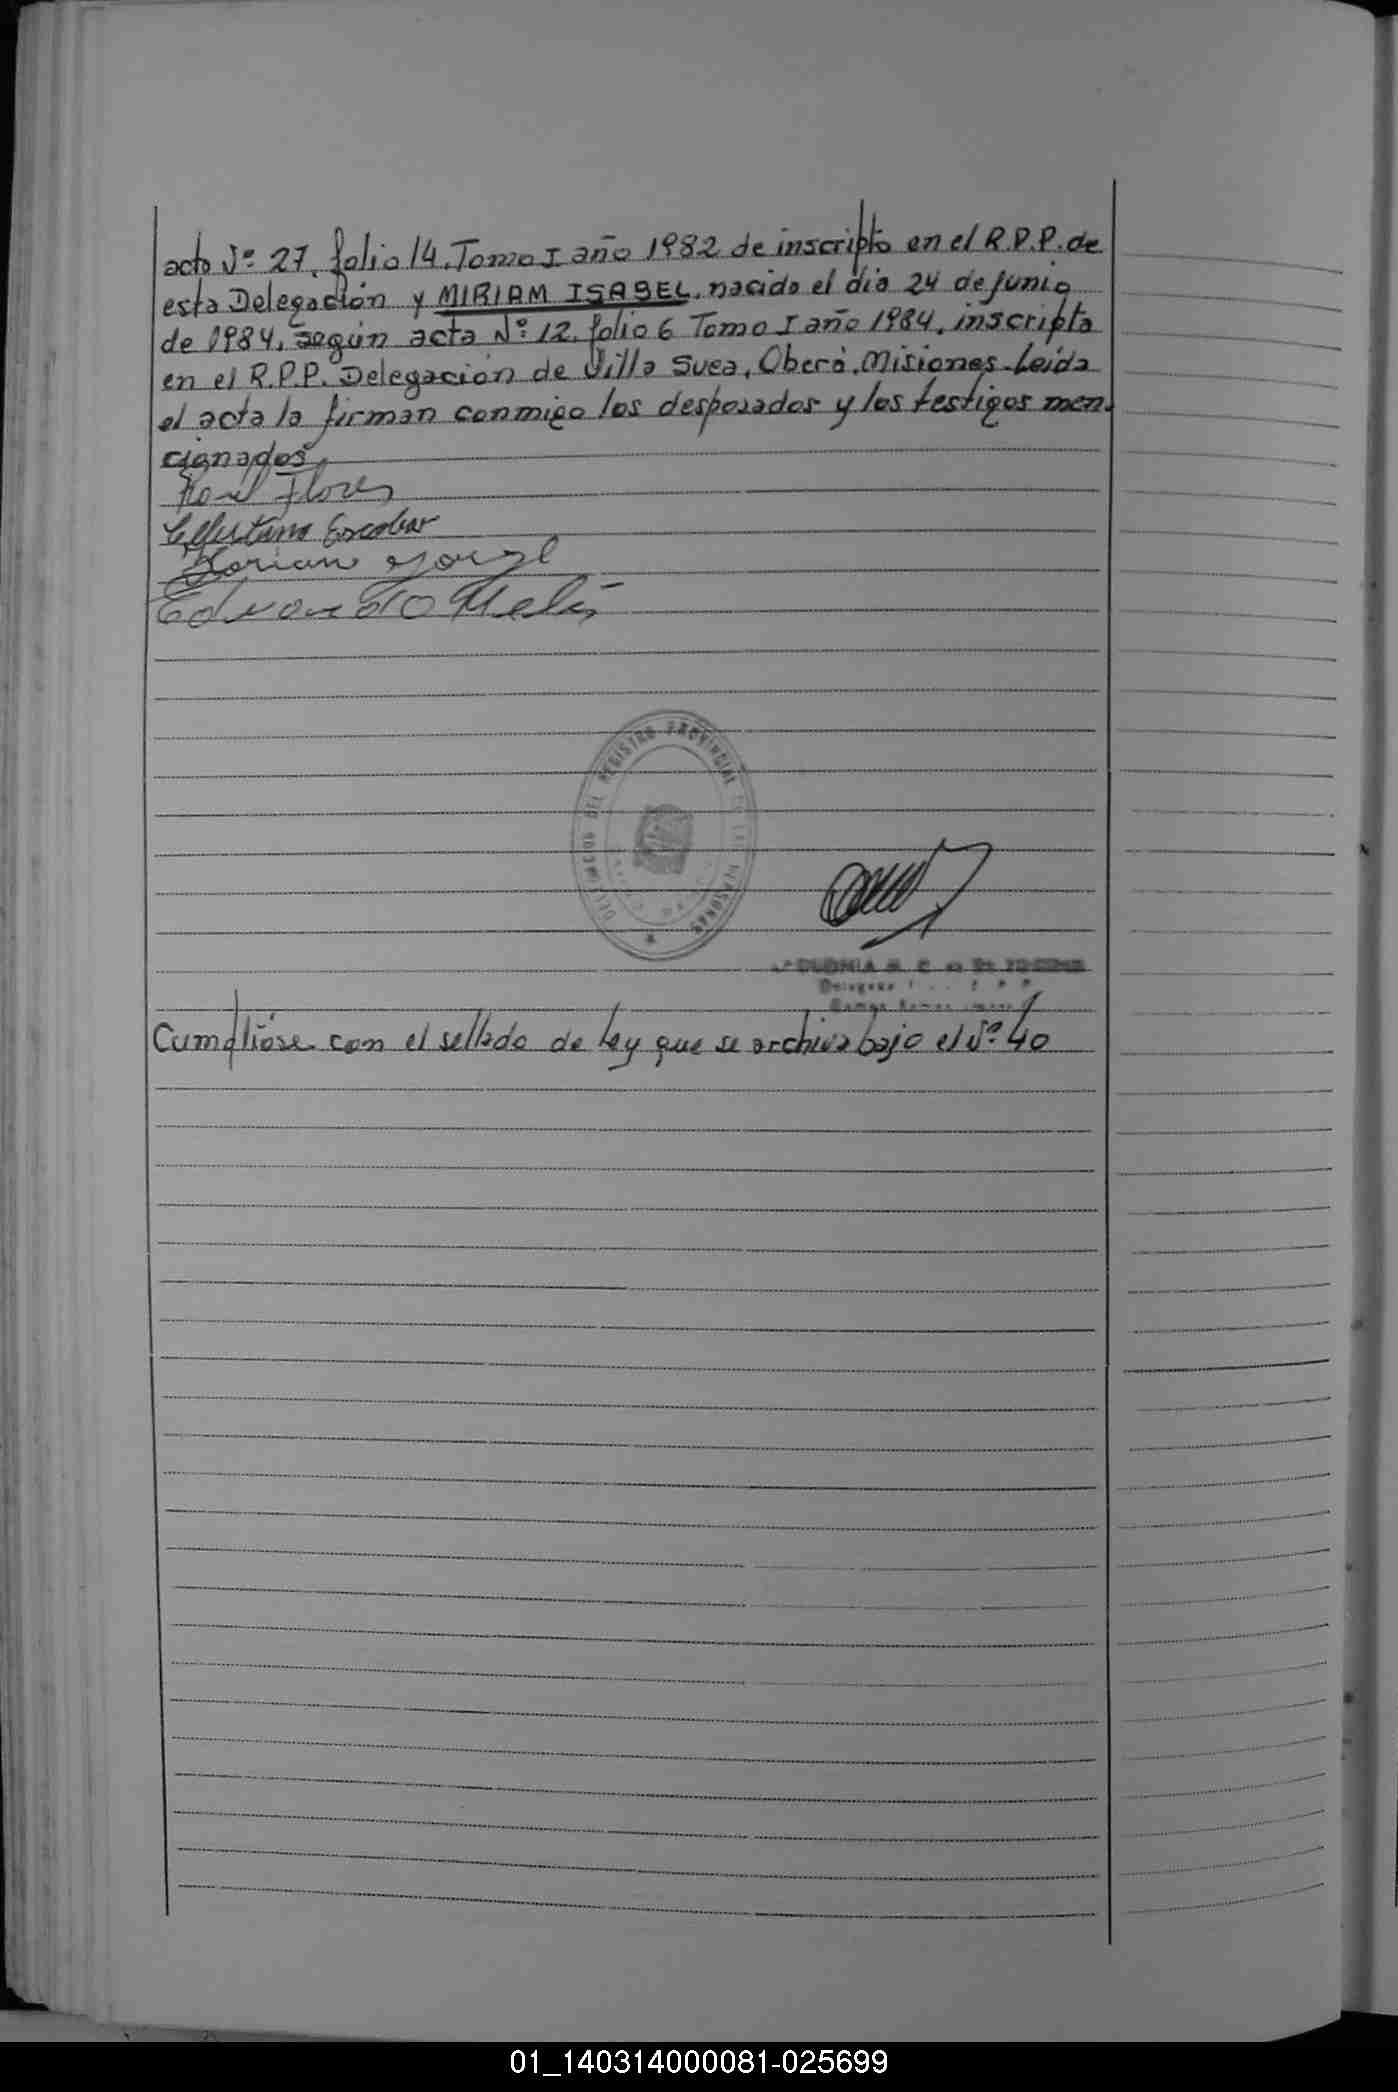 acta Nº 27, folio 14, Tomo I año 1982 de inscripto en el R.P.P. de
esta Delegación y MIRIAM ISABEL, nacida el dia 24 de Junio
de 1984, según acta Nº 12, folio 6 Tomo I año 1984, inscripta
en el R.P.P. Delegación de Villa Svea, Oberá, Misiones. Leída
el acta la firman conmigo los desposados y los testigos men-
cionados.
Flores
Escobar
Eduardo
DELEGADO DEL REGISTRO PROVINCIAL DE LAS PERSONAS
Cumplióse con el sellado de Ley que se archiva bajo el Nº 40
01_140314000081-025699